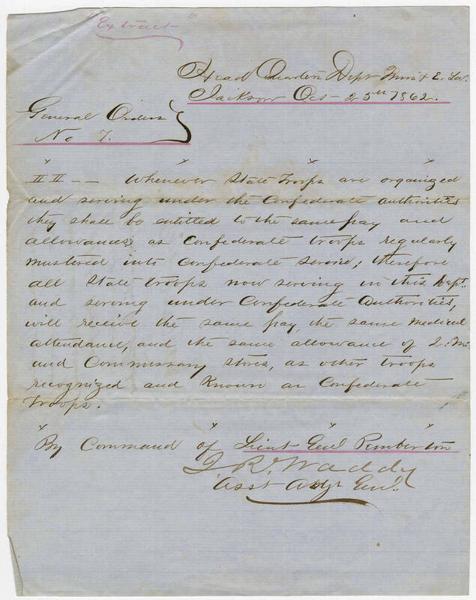 Extract
Head Quarters Dept Miss & E. La.
Jackson Oct 25th 1862.
General Orders
No 7.
x x x
II II - - Whenever State Troops are organized
and serving under the Confederate authorities
they shall be entitled to the same pay and
allowances as Confederate troops regularly
mustered into Confederate service; therefore
all State troops now serving in this Dept.
and serving under Confederate Authorities,
will receive the same pay, the same medical
attendance, and the same allowance of Q. M.
and Commissary stores, as other troops
recognized and known as Confederate
Troops.
x x x
By Command of Lieut Genl Pemberton
R. Waddy
Asst Adjt Genl.